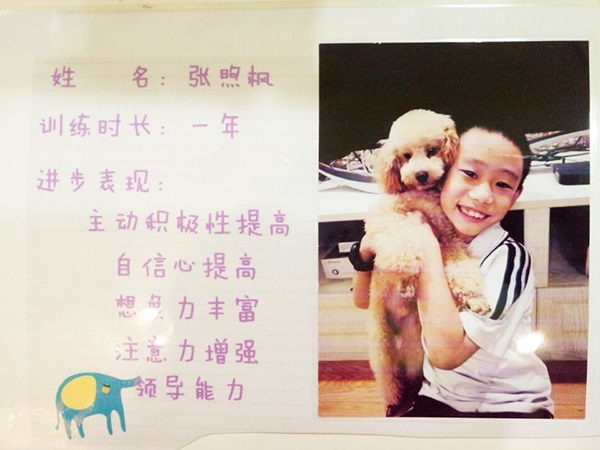 姓 名: 张煦枫
训练时长: 一年
进步表现:
主动积极性提高
自信心提高
想象力丰富
注意力增强
领导能力